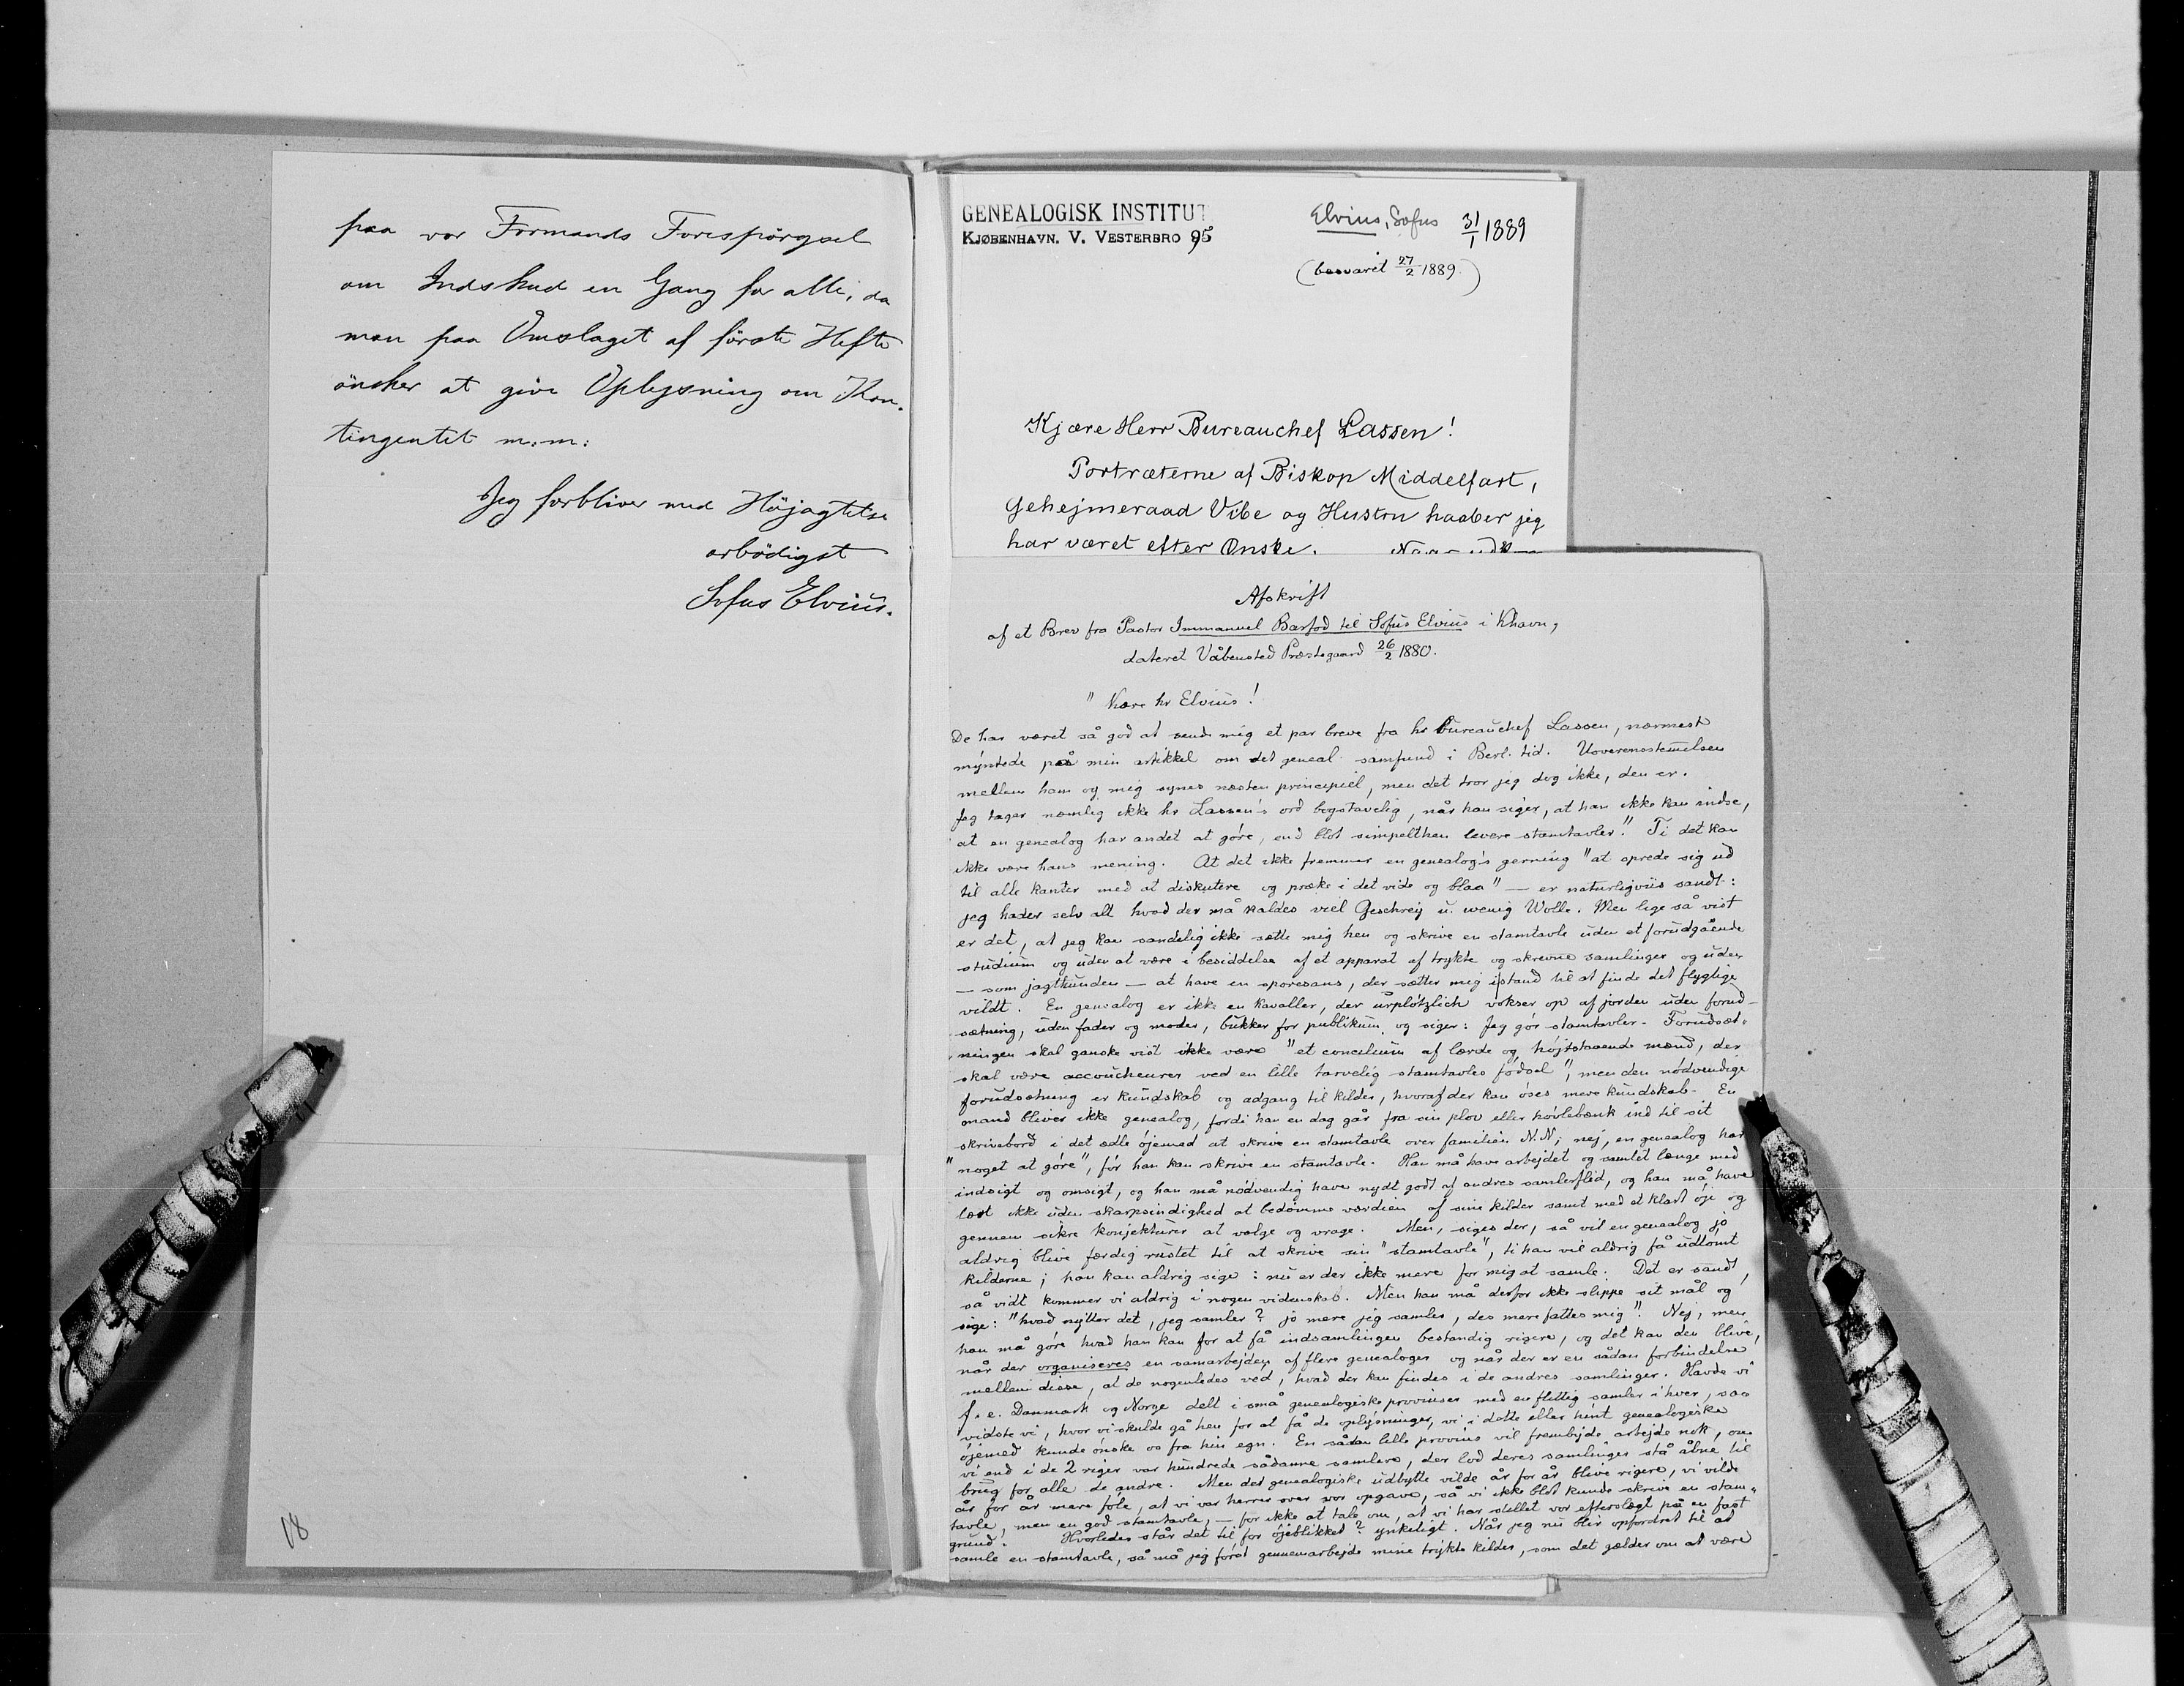 paa vor Formands Forespörgsel
om Indskud en Gang for alle, da
man paa Omslaget af förste Hefte
önsker at give Oplysning om Kon-
tingentet m:m:
Jeg forbliver med Höjagtelse
ærbödigst
Sofus Elvius.
18
GENEALOGISK INSTITUT
KJØBENHAVN. V. VESTERBRO 95
Elvius, Sofus 31/1 1889
(besvaret 27/2 1889.)
Kjære Herr Bureauchef Lassen!
Portræterne af Biskop Middelfart,
Gehejmeraad Vibe og Hustru haaber jeg
har været efter Ønske.
Afskrift
af et Brev fra Pastor Immanuel Barfod til Sofus Elvius i Khavn,
dateret Våbensted Præstegaard 26/2 1880.
"Kære hr Elvius!
De har været så god at sende mig et par breve fra hr bureauchef Lassen, nærmest
myntede på min artikkel om det geneal. samfund i Berl. tid. Uoverensstemelsen
mellem ham og mig synes næsten principiel, men det tror jeg dog ikke, den er.
Jeg tager nemlig ikke hr Lassen's ord bogstavelig, når han siger, at han ikke kan indse,
at en genealog har andet at göre, end blot simpelthen levere stamtavler". Ti det kan
ikke være hans mening. At det ikke fremmer en genealog's gerning "at sprede sig ud
til alle kanter med at diskutere og præke i det vide og blaa" — er naturligviis sandt:
jeg hader selv alt hvad der må kaldes viel Geschrey u. wenig Wolle. Men lige så vist
er det, at jeg kan sandelig ikke sætte mig hen og skrive en stamtavle uden et forudgående
studium og uden at være i besiddelse af et apparat af trykte og skrevne samlinger og uden
— som jagthunden — at have en sporesans, der sætter mig istand til at finde det flygtige
vildt. En genealog er ikke en kavaller, der urplötzlich vokser op af jorden uden forud-
sætning, uden fader og moder, bukker for publikum og siger: Jeg gör stamtavler. Forudsæt-
ningen skal ganske vist ikke være "et concilium af lærde og höjtstaaende mænd, der
skal være accoucheurer ved en lille tarvelig stamtavles födsel", men den nödvendige
forudsætning er kundskab og adgang til kilder, hvoraf der kan öses mere kundskab. En
mand bliver ikke genealog, fordi han en dag går fra sin plov eller hövlebænk ind til sit
skrivebord i det ædle öjemed at skrive en stamtavle over familien N.N; nej, en genealog har
"noget at göre", för han kan skrive en stamtavle. Han må have arbejdet og samlet længe med
indsigt og omsigt, og han må nödvendig have nydt godt af andres samlerflid, og han må have
lært ikke uden skarpsindighed at bedömme værdien af sine kilder samt med et klart öje og
gennem sikre konjekturer at vælge og vrage. Men, siges der, så vil en genealog jo
aldrig blive færdig rustet til at skrive sin "stamtavle", ti han vil aldrig få udtömt
kilderne; han kan aldrig sige: nu er der ikke mere for mig at samle. Det er sandt,
så vidt kommer vi aldrig i nogen videnskab. Men han må derfor ikke slippe sit mål og
sige: "hvad nytter det, jeg samler? jo mere jeg samler, des mere fattes mig". Nej, men
han må göre hvad han kan for at få indsamlingen bestandig rigere, og det kan den blive,
når der organiseres en samarbejden af flere genealoger og når der er en sådan forbindelse
mellem disse, at de nogenledes ved, hvad der kan findes i de andres samlinger. Havde vi
f. e. Danmark og Norge delt i små genealogiske provinser med en flittig samler i hver, saa
vidste vi, hvor vi skulde gå hen for at få de oplysninger, vi i dette eller hint genealogiske
öjemed kunde önske os fra hin egn. En sådan lille provins vil frembyde arbejde nok, om
vi end i de 2 riger var hundrede sådanne samlere, der lod deres samlinger stå åbne til
brug for alle de andre. Men det genealogiske udbytte vilde år for år blive rigere, vi vilde
år for år mere föle, at vi var herrer over vor opgave, så vi ikke blot kunde skrive en stam-
tavle, men en god stamtavle, — for ikke at tale om, at vi har stillet vor efterslægt på en fast
grund. Hvorledes står det til for öjeblikket? ynkeligt. Når jeg nu blir opfordret til at
samle en stamtavle, så må jeg först gennemarbejde mine trykte kilder, som det gælder om at være